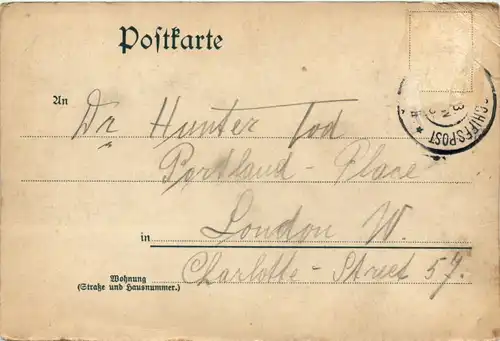 Postkarte
An Dr Hunter Tod
Portland-Place
in London W.
Wohnung
(Straße und Hausnummer.)
Charlotte-Street 57.
SCHIFFSPOST *